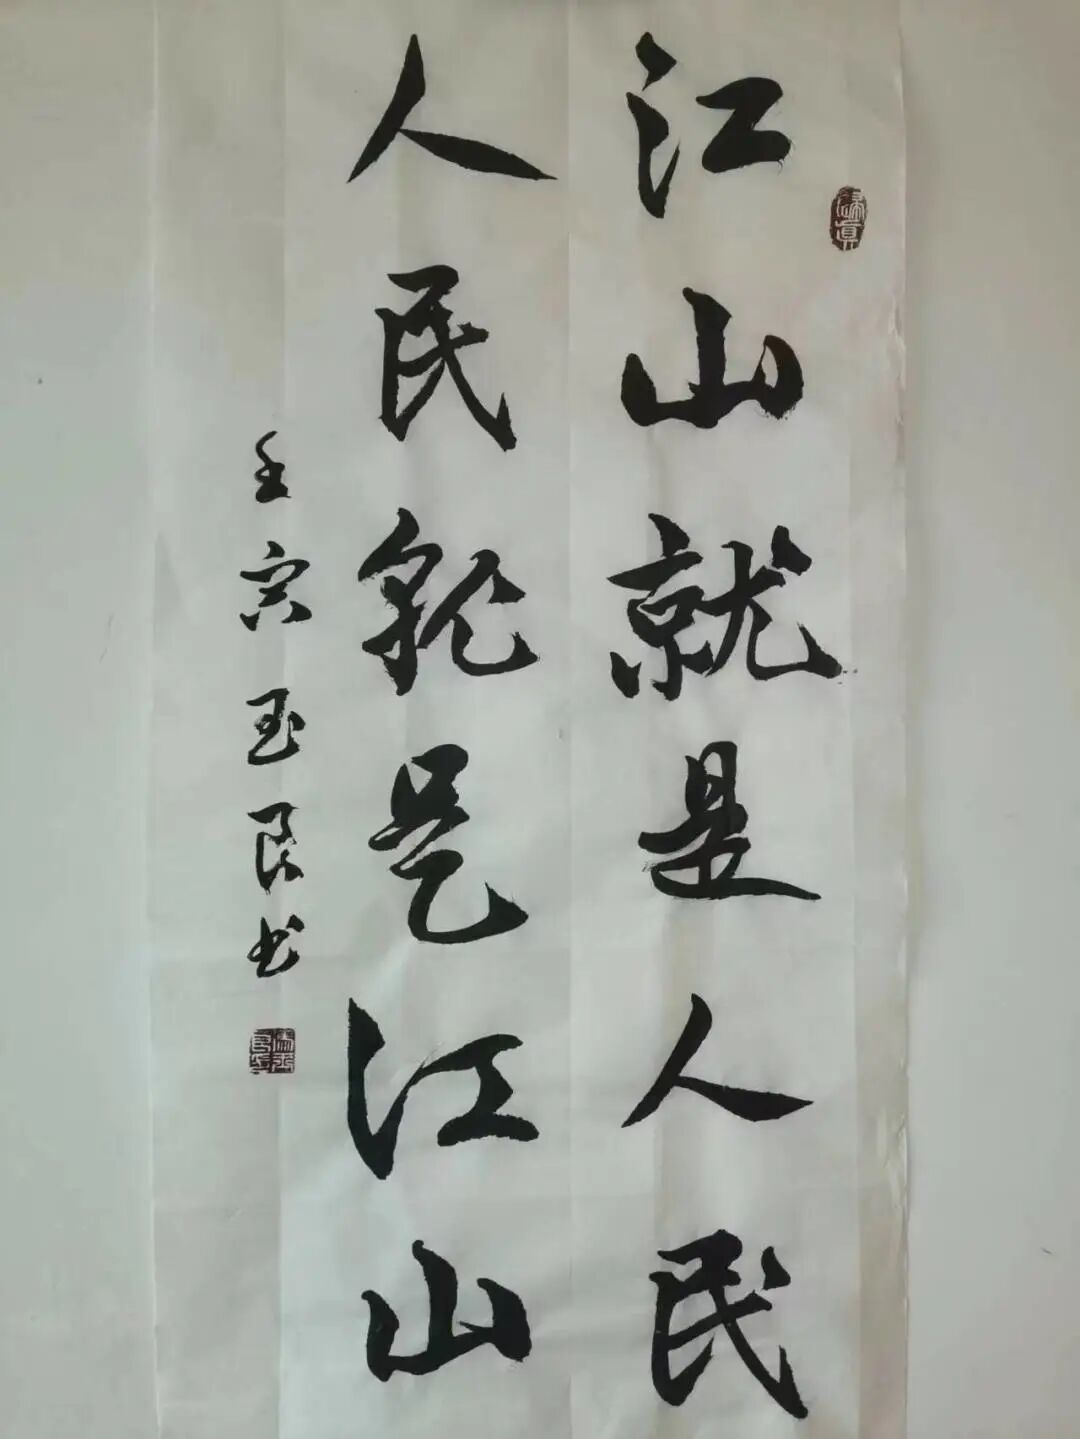 江山就是人民
人民就是江山
壬寅玉良书